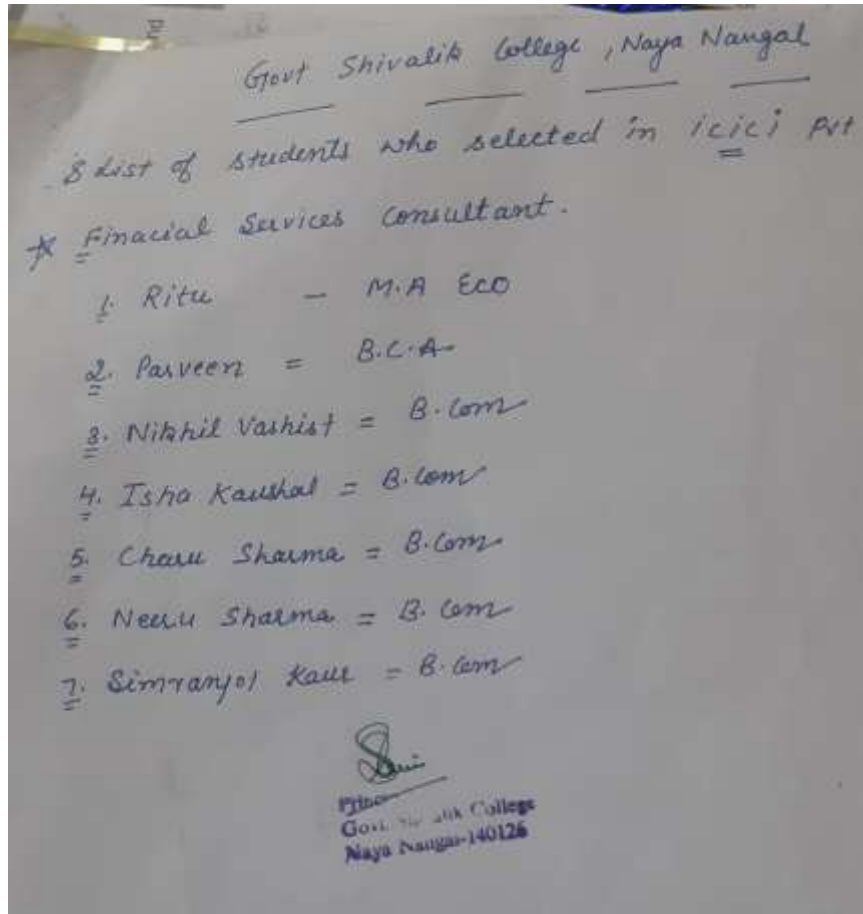 Govt Shivalik College, Naya Nangal
List of students who selected in icici Pvt
* Finacial Services Consultant.
1. Ritu - M.A Eco
2. Parveen = B.C.A
3. Nikhil Vashist = B.Com
4. Isha Kaushal = B.Com
5. Charu Sharma = B.Com
6. Neeru Sharma = B.Com
7. Simranjot Kaur = B.Com
Govt. College
Naya Nangal-140126